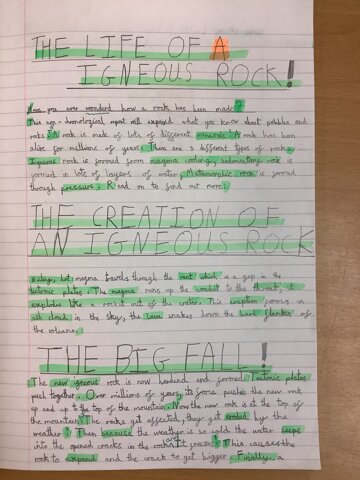 THE LIFE OF A
IGNEOUS ROCK!
Have you ever wondered how a rock has been made?
This non-chronological report will expand what you know about pebbles and
rocks. A rock is made of lots of different minerals! A rock has been
alive for millions of years. There are 3 different types of rock.
Igneous rock is formed from magma cooling, sedimentary rock is
formed in lots of layers of water, Metamorphic rock is formed
through pressure. Read on to find out more!
THE CREATION OF
AN IGNEOUS ROCK
hot magma travels through the vent which is a gap in the
tectonic plates. The magma runs up the conduit to the throat, it
explodes like a rocket out of the crater. This eruption forms an
ash cloud in the sky, the lava snakes down the hard flanks of
the volcano.
THE BIG FALL!
The new igneous rock is now hardened and formed. Tectonic plates
push together. Over millions of years, its force pushes the new rock
up and up to the top of the mountain. Now the new rock is at the top of the
mountain! The rocks get affected, they get eroded by the
weather! Then because the weather is so cold the water seeps
into the opened cracks in the rock and it freezes! This causes the
rock to expand and the crack to get bigger. Finally, a